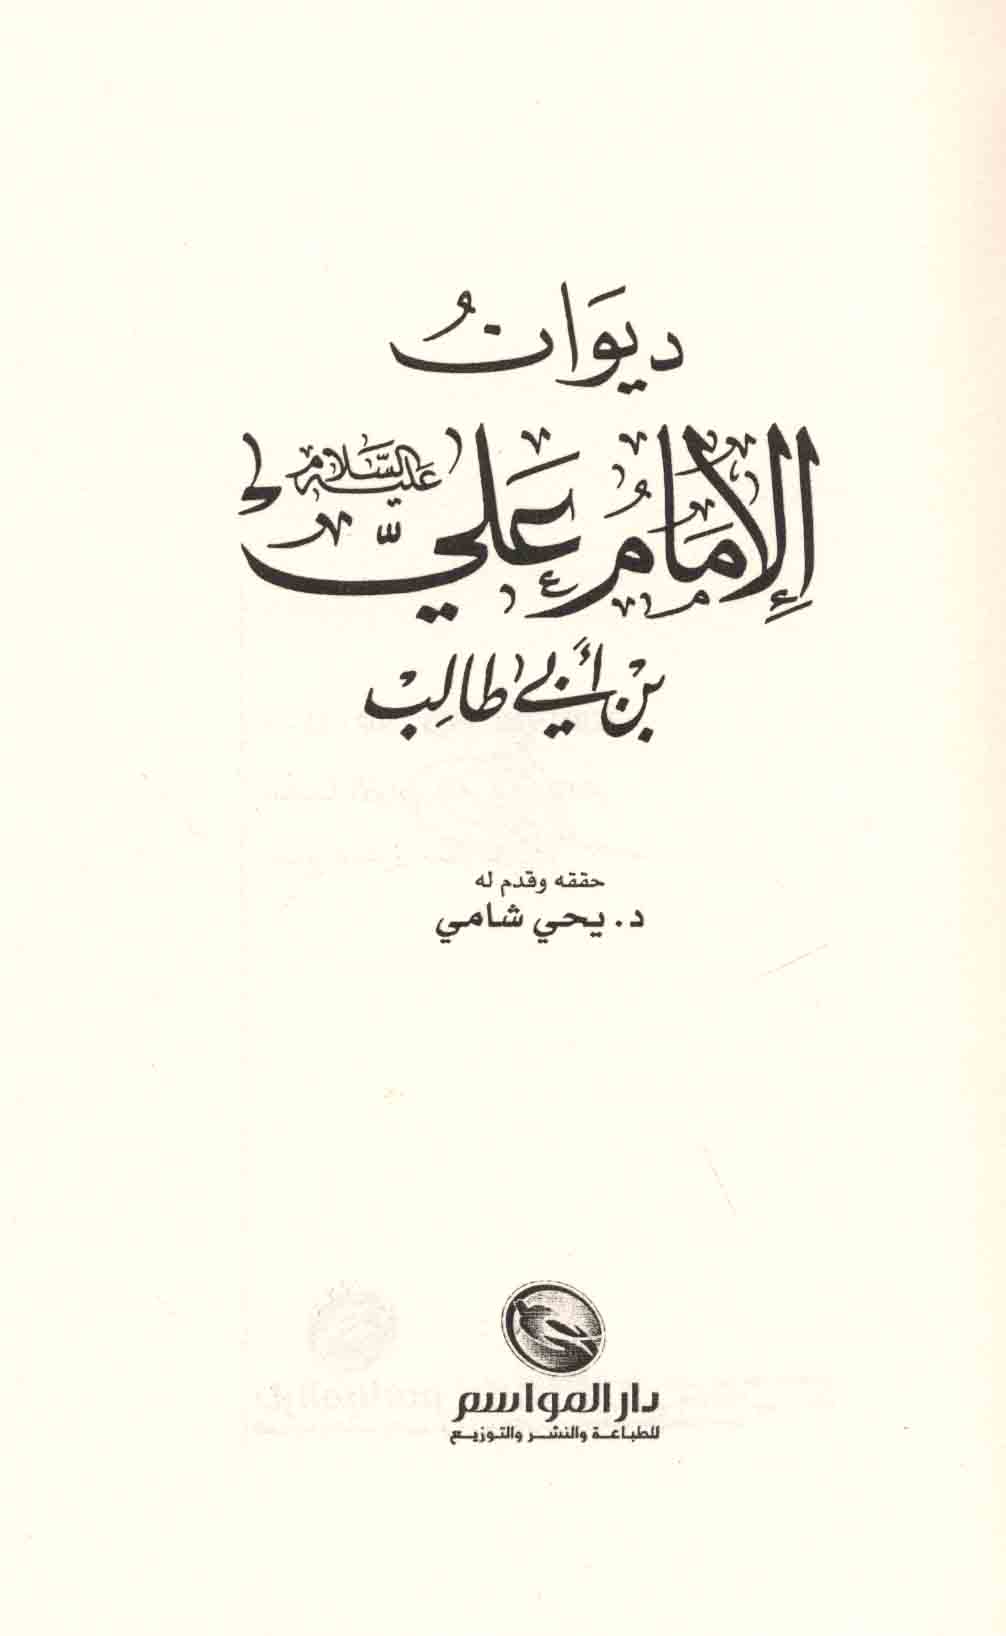 ديوان
الإمام علي عليه السلام
بن أبي طالب
حققه وقدم له
د. يحي شامي
دار المواسم
للطباعة والنشر والتوزيع